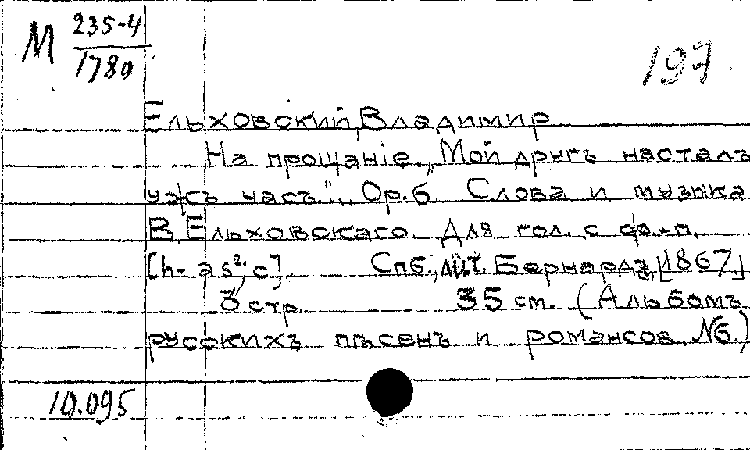 М 235-4
1780
197
Ельховский, Владимир
На прощанiе. „Мой другъ насталъ
ужъ часъ". Op. 6. Слова и музыка
В. Ельховскаго. Для гол. с ф.-п.
[h-as², c]. Спб., лит. Бернарда, [1867]
3 стр. 35 cm. (Альбомъ
русскихъ пѣсенъ и романсов №6.)
10.095